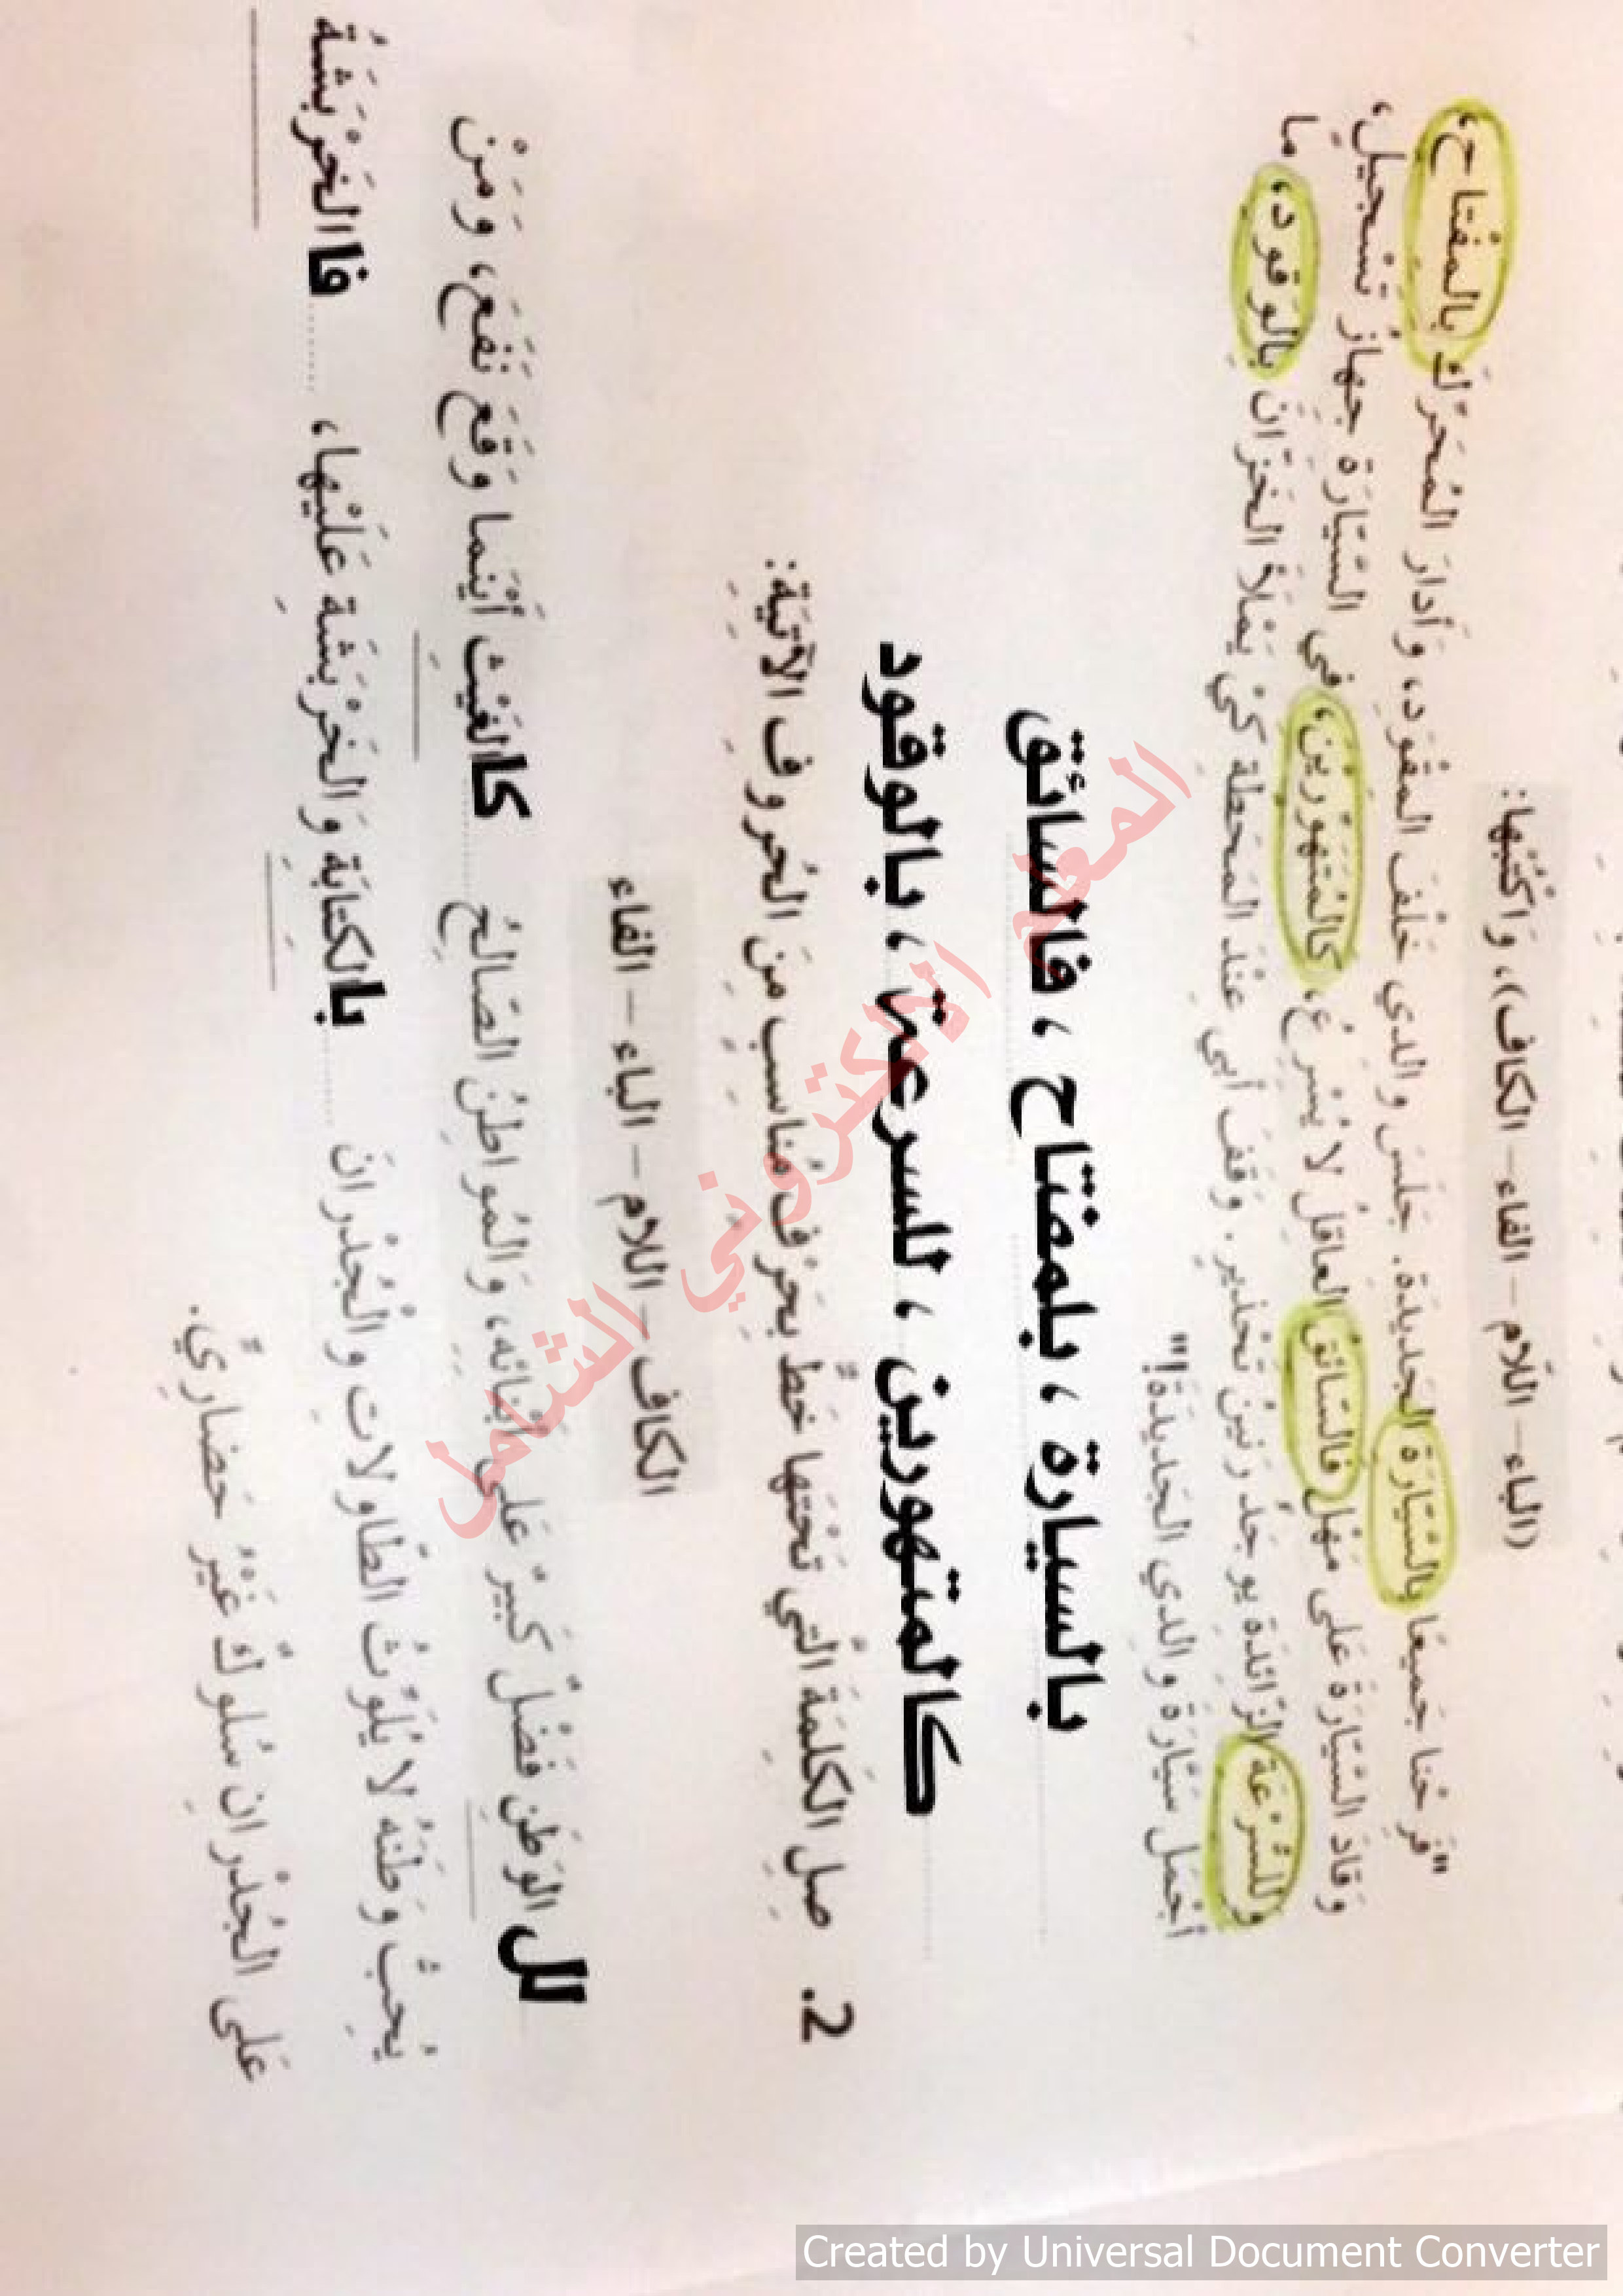 (الباء – اللّام – الفاء – الكاف)، وَاكْتُبْها:
"فَرِحْنا جَميعًا بِالسَّيّارَةِ الجَديدَةِ. جَلَسَ والدي خَلْفَ المِقْوَدِ، وَأَدارَ المُحَرِّكَ بِالمِفْتاحِ،
وَقادَ السَّيّارَةَ عَلى مَهْلٍ فَالسّائِقُ العاقِلُ لا يُسْرِعُ، كَالمُتَهَوِّرينَ، في السَّيّارَةِ جِهازُ تَسْجيلٍ،
وَلِلسُّرْعَةِ الزّائِدَةِ يوجَدُ رَنينُ تَحْذيرٍ. وَقَفَ أَبي عِنْدَ المَحَطَّةِ كَيْ يَمْلَأَ الخَزّانَ بِالوَقودِ، ما
أَجْمَلَ سَيّارَةَ والدي الجَديدَةَ!"
بالسيارة ، بلمفتاح ، فالسائق
كالمتهورين ، للسرعة ، بالوقود
2. صِلِ الكَلِمَةَ الَّتي تَحْتَها خَطٌّ بِحَرْفٍ مُناسِبٍ مِنَ الحُروفِ الآتِيَةِ:
الكاف – اللام – الباء – الفاء
لل الوَطَنِ فَضْلٌ كَبيرٌ عَلى أَبْنائِهِ، وَالمُواطِنُ الصّالِحُ كا الغَيْثِ أَيْنَما وَقَعَ نَفَعَ، وَمَنْ
يُحِبُّ وَطَنَهُ لا يُلَوِّثُ الطّاوِلاتِ وَالْجُدْرانَ با الكِتابَةِ وَالخَرْبَشَةِ عَلَيْها، فا الخَرْبَشَةُ
عَلى الجُدْرانِ سُلوكٌ غَيْرُ حَضارِيٍّ.
المعلم الالكتروني الشامل
Created by Universal Document Converter